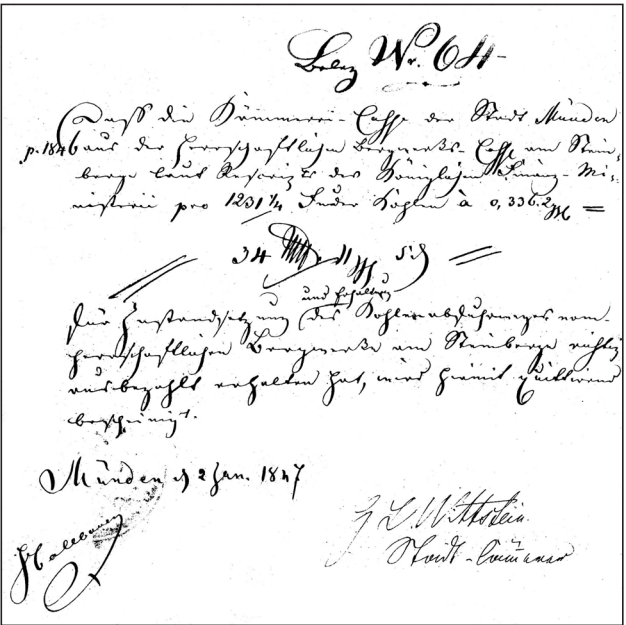 Beleg Nr. 64
Daß die Kämmerei-Casse der Stadt Münden
p. 1846 aus der herrschaftlichen Bergwerks-Casse am Stein-
berge laut Rescripts des Königlichen Finanz-Mi-
nisterii pro 1231 1/4 Fuder Kohlen à 0,336.2 =
34 11 5
und Erhaltung
für Instandsetzung des Kohlenabfuhrweges vom
herrschaftlichen Bergwerke am Steinberge richtig
ausbezahlt erhalten hat, wird hiemit quittirend
bescheinigt.
Münden d 2 Jan. 1847
J L Wittstein
Stadt-Cämmerer